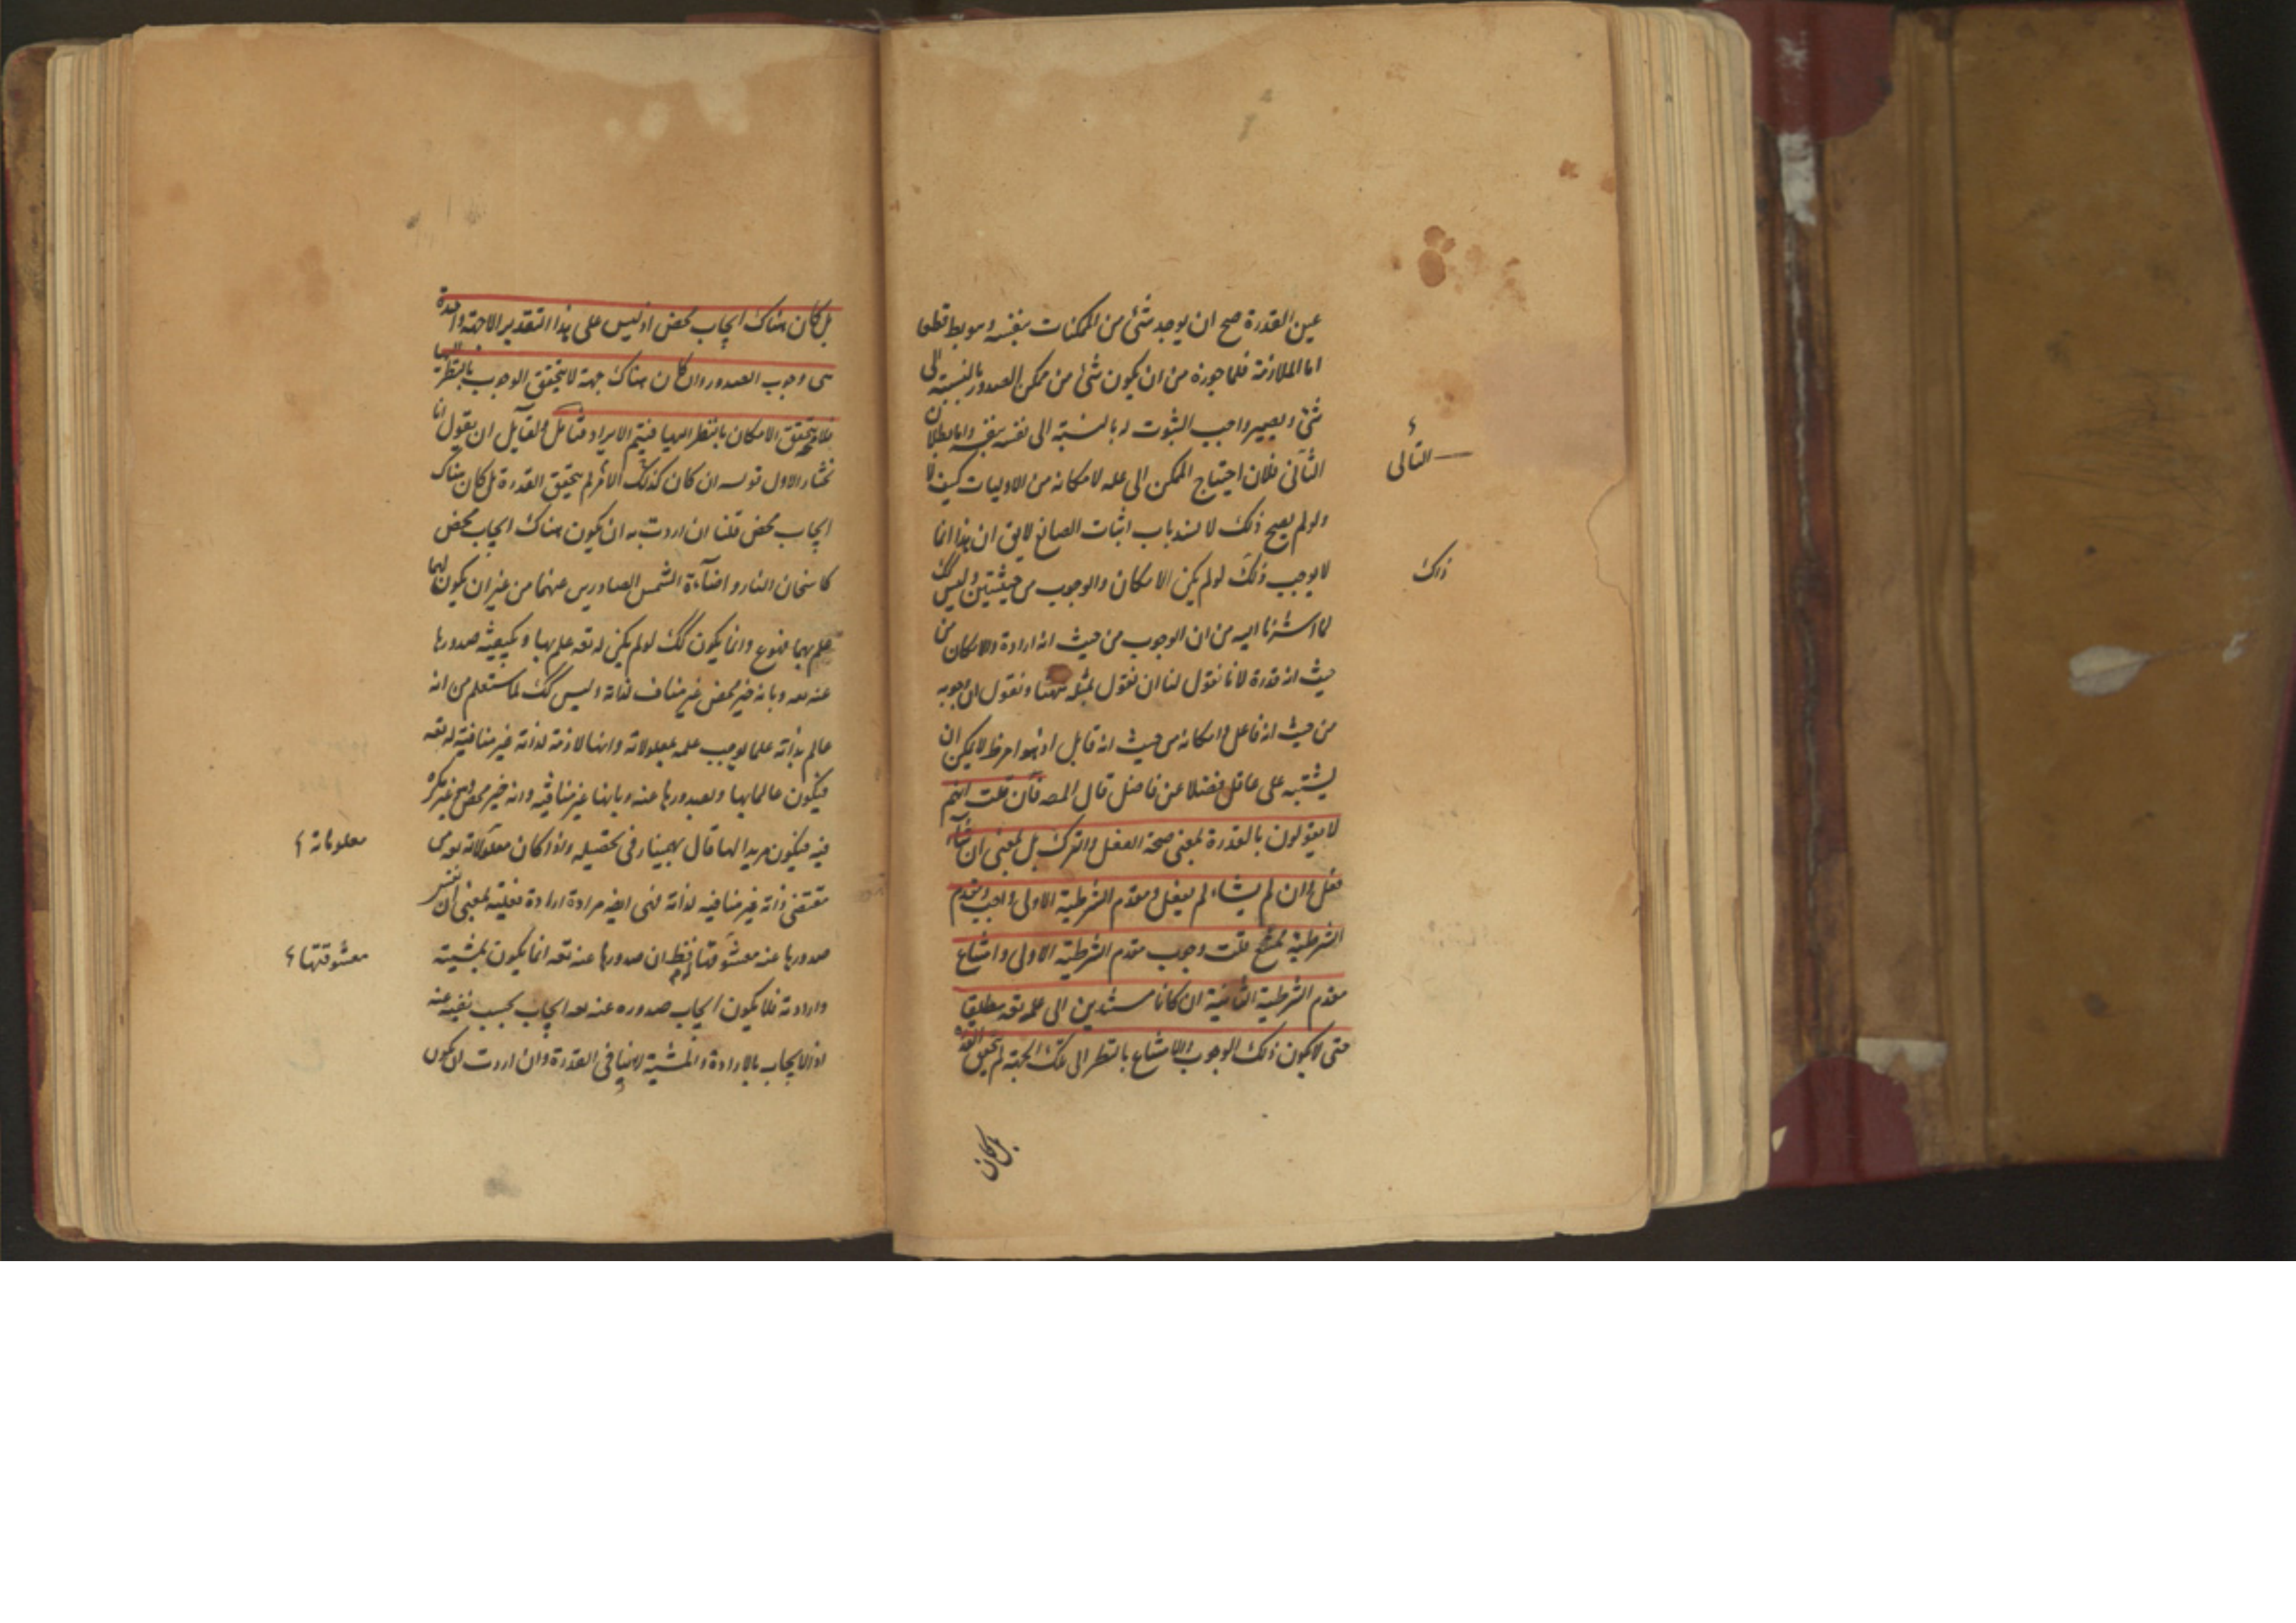 عين القدرة صح ان يوجد شئ من الممكنات بنفسه وهو بط قطعا
اما الملازمة فلما جوزه من ان يكون شئ من ممكن الصدور بالنسبة الى
شئ ويصير واجب الثبوت له بالنسبة الى نفسه بنفسه واما بطلان
الثانى فلان احتياج الممكن الى علة لامكانه من الاوليات كيف لا
ولو لم يصح ذلك لانسد باب اثبات الصانع لايق ان هذا انما
لا يوجب ذلك لو لم يكن الامكان والوجوب من حيثيتين وليس كك
لما اشرنا اليه من ان الوجوب من حيث انه ارادة والامكان من
حيث انه قدرة لانا نقول لنا ان نقول بمثله ههنا ونقول ان وجوبه
من حيث انه فاعل وامكانه من حيث انه قابل اذ لا يمكن ان
يشتبه على عاقل فضلا عن فاضل قال المص فان قلت انهم
لا يقولون بالقدرة بمعنى صحة الفعل والترك بل بمعنى ان شاء
فعل وان لم يشاء لم يفعل ومقدم الشرطية الاولى واجب ومقدم
الشرطية ممتنع قلت وجوب مقدم الشرطية الاولى وامتناع
مقدم الشرطية الثانية ان كانا مستندين الى علمه تعه مطلقا
حتى لا يكون ذلك الوجوب والامتناع بالنظر الى تلك الجهة لم يتحقق القدرة
التالى
ذاك
بل كان
بل كان هناك ايجاب محض اذ ليس على هذا التقدير الا جهة واحدة
هى وجوب الصدور وان كان هناك جهة لا يتحقق الوجوب بالنظر اليها
فلا يتحقق الامكان بالنظر اليها فيتم الايراد فتأمل ولقايل ان يقول انا
نختار الاول قوله ان كان كذلك الامر لم يتحقق القدرة بل كان هناك
ايجاب محض قلنا ان اردت به ان يكون هناك ايجاب محض
كاسخان النار واضاءة الشمس الصادرين عنهما من غير ان يكون لهما
علم بهما فممنوع وانما يكون كك لو لم يكن له تعه علم بها وبكيفية صدورها
عنه تعه وبانه خير محض غير مناف لذاته وليس كك لما ستعلم من انه
عالم بذاته علما يوجب علمه بمعلولاته وانها لازمة لذاته غير منافية له تعه
فيكون عالما بها وبصدورها عنه وبانها غير منافية وانه خير محض
فيه فيكون مريدا لها قال بهمنيار فى تحصيله واذا كان معقولاته تعه
مقتضى ذاته غير منافيه لذاته فهى ايضه مرادة ارادة فعلية بمعنى ان نفس
صدورها عنه معشوقتها فظهر ان صدورها عنه تعه انما يكون بمشيته
وارادته فلا يكون ايجاب صدوره عنه تعه ايجاب بحسب نفيه عنه
اذ الايجاب بالارادة والمشية لا ينافى القدرة وان اردت ان يكون
معلوماته
معشوقتها